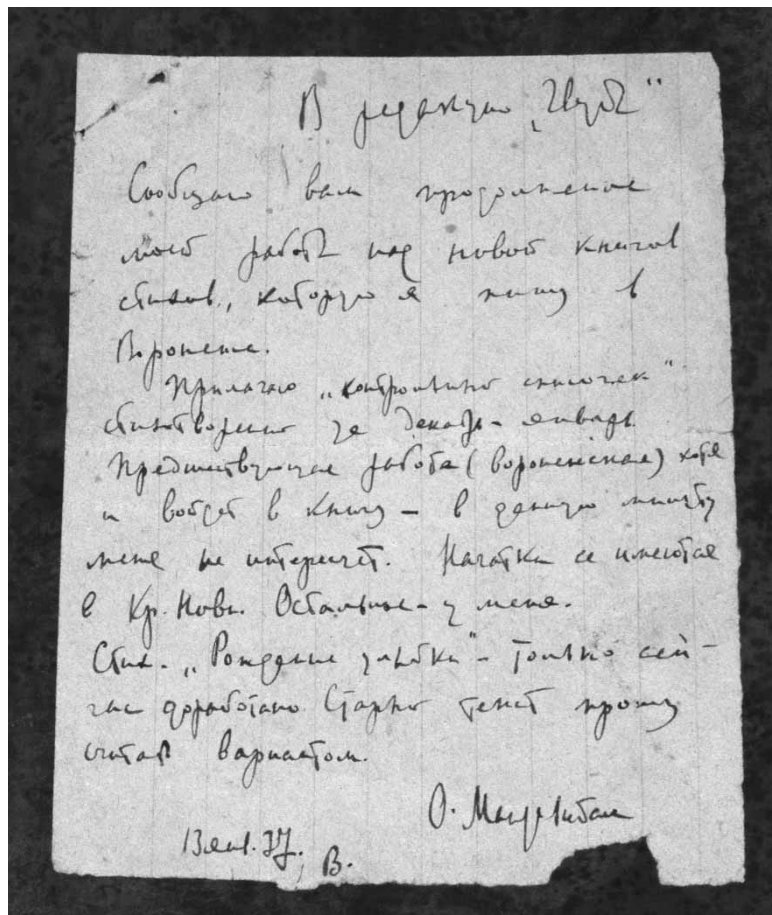 В редакцию „Звезды“
Сообщаю вам продолжение
моей работы над новой книгой
стихов, которую я пишу в
Воронеже.
Прилагаю „контрольный списочек“
стихотворений за декабрь – январь.
Предшествующая работа (воронежская) хотя
и войдет в книгу – в данную минуту
меня не интересует. Начатки ее имеются
в Кр. Нови. Остальные – у меня.
Стих. „Рождение улыбки“ – только сей-
час доработано. Старый текст прошу
считать вариантом.
О. Мандельштам
13 янв. 37.
В.